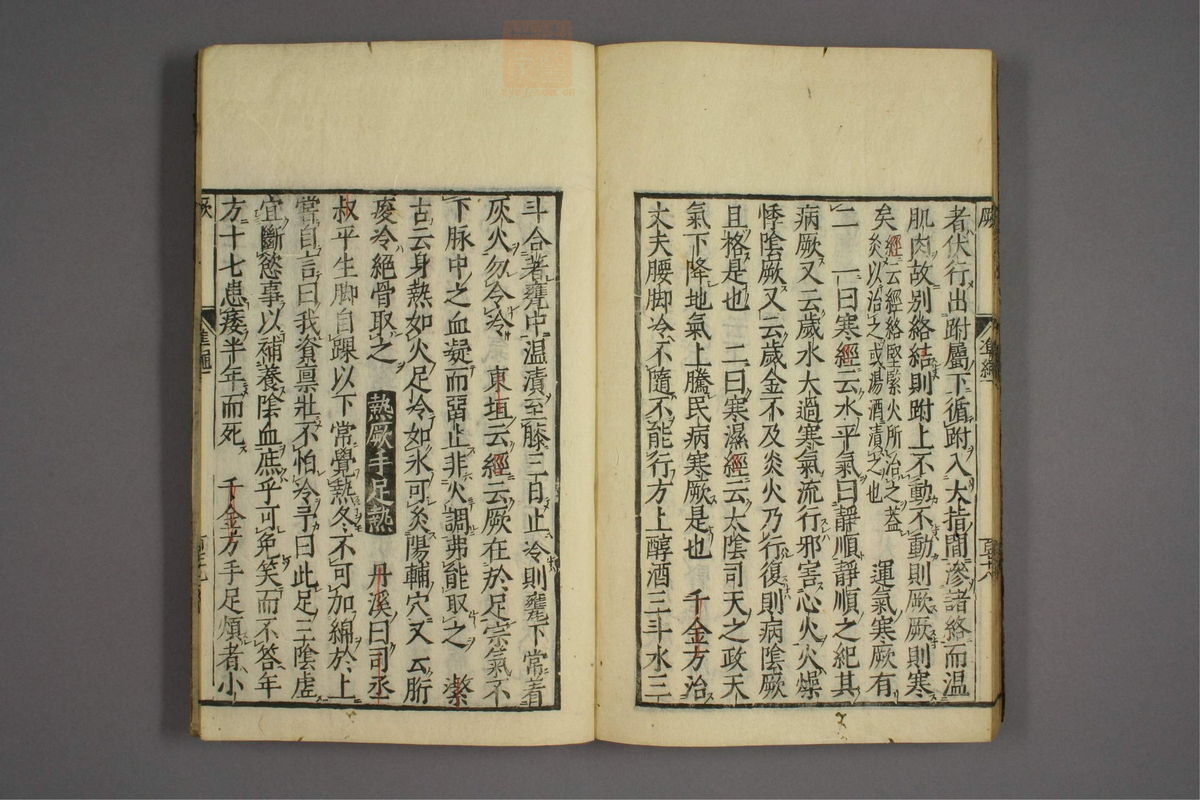 厥
者伏行出跗屬下循跗入大指間滲諸絡而温
肌肉故别絡結則跗上不動不動則厥厥則寒
矣經云經絡堅緊火所治之蓋灸以治之或湯酒漬之也 運氣寒厥有
二 一曰寒經云水平氣曰靜順靜順之紀其
病厥又云歲水太過寒氣流行邪害心火火燥
悸陰厥又云歲金不及炎火乃行復則病陰厥
且格是也 二曰寒濕經云太陰司天之政天
氣下降地氣上騰民病寒厥是也 千金方治
丈夫腰脚冷不隨不能行方上醇酒三斗水三
斗合著甕中温漬至膝三日止冷則甕下常着
灰火勿令冷 東垣云經云厥在於足宗氣不
下脉中之血凝而留止非火調弗能取之 潔
古云身熱如火足冷如氷可灸陽輔穴又云胻
痠冷絕骨取之 熱厥手足熱 丹溪曰司丞
叔平生脚自踝以下常覺熱冬不可加綿於上
嘗自言曰我資禀壯不怕冷予曰此足三陰虛
宜斷慾事以補養陰血庶乎可免笑而不答年
方十七患痿半年而死 千金方手足煩者小
厥